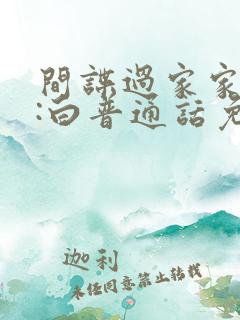 間諜過家家
:白普通話免
迦利
未经同意禁止转载